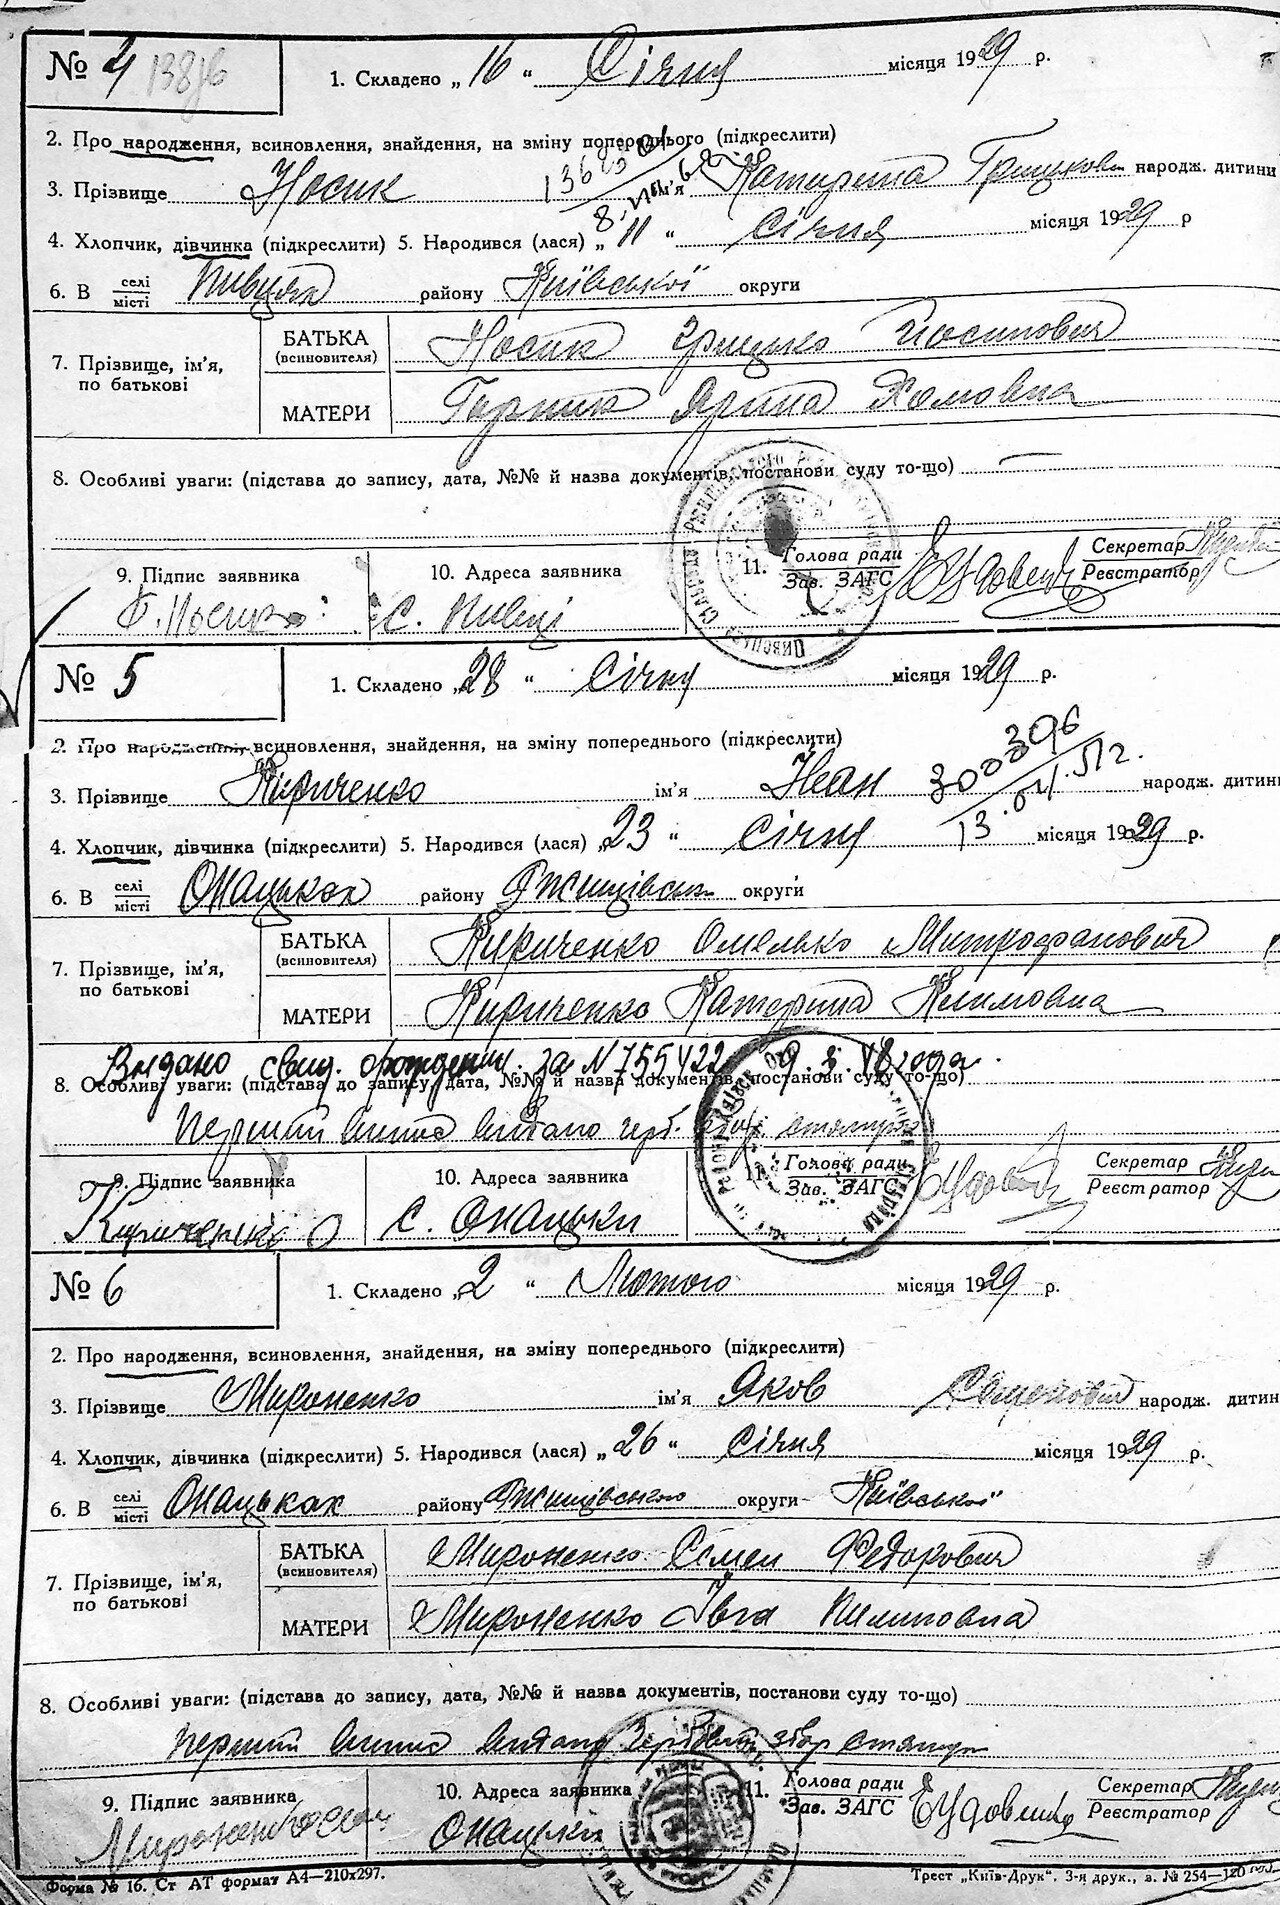 № 4 1. Складено „16“ Січня місяця 1929 р.
2. Про народження, всиновлення, знайдення, на зміну попереднього (підкреслити)
3. Прізвище Носик ім'я Катерина народж. дитини
4. Хлопчик, дівчинка (підкреслити) 5. Народився (лася) „11“ Січня місяця 1929 р
6. В селі місті Пивцях району Київської округи
7. Прізвище, ім'я, по батькові
БАТЬКА (всиновителя) Носик Грицько Йосипович
МАТЕРИ Ярина Хомовна
8. Особливі уваги: (підстава до запису, дата, №№ й назва документів, постанови суду то-що)
9. Підпис заявника 10. Адреса заявника 11. Голова ради Зав. ЗАГС Секретар Реєстратор
с. Пивці
№ 5 1. Складено „28“ Січня місяця 1929 р.
2. Про народження, всиновлення, знайдення, на зміну попереднього (підкреслити)
3. Прізвище Кириченко ім'я Іван народж. дитини
4. Хлопчик, дівчинка (підкреслити) 5. Народився (лася) „23“ Січня місяця 1929 р.
6. В селі місті Онацьках району Ржищівськ округи
7. Прізвище, ім'я, по батькові
БАТЬКА (всиновителя) Кириченко Омелько Митрофанович
МАТЕРИ Кириченко Катерина Климовна
Выдано свид. о рождении за N 755422
8. Особливі уваги: (підстава до запису, дата, №№ й назва документів, постанови суду то-що)
Перший видано герб.
9. Підпис заявника 10. Адреса заявника 11. Голова ради Зав. ЗАГС Секретар Реєстратор
Кириченко О с. Онацьки
№ 6 1. Складено „2“ Лютого місяця 1929 р.
2. Про народження, всиновлення, знайдення, на зміну попереднього (підкреслити)
3. Прізвище Мироненко ім'я Яков Семенович народж. дитин
4. Хлопчик, дівчинка (підкреслити) 5. Народився (лася) „26“ Січня місяця 1929 р.
6. В селі місті Онацьках району Ржищівського округи Київської
7. Прізвище, ім'я, по батькові
БАТЬКА (всиновителя) Мироненко Семен Федорович
МАТЕРИ Мироненко Івга Пилиповна
8. Особливі уваги: (підстава до запису, дата, №№ й назва документів, постанови суду то-що)
Перший видано Гербовий збір
9. Підпис заявника 10. Адреса заявника 11. Голова ради Зав. ЗАГС Секретар Реєстратор
Онацьки
Форма № 16. Ст АТ формат А4—210х297. Трест „Київ-Друк“. 3-я друк., з. № 254—120